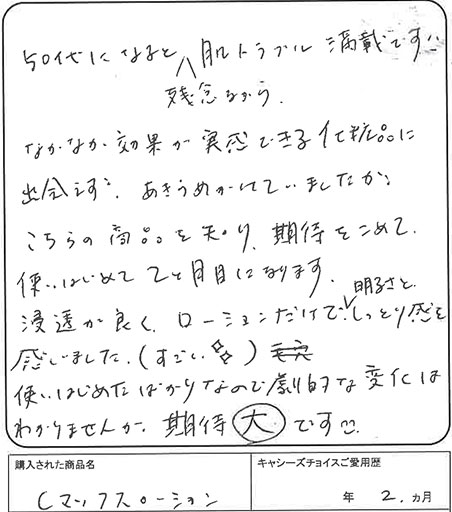 50代になると 肌トラブル 満載です
残念ながら、
なかなか 効果が 実感できる 化粧品に
出会えず、あきらめかけていましたが、
こちらの 商品を 知り、期待をこめて、
使いはじめて 2ヶ月目になります。
明るさと、
浸透が良く、ローションだけで、しっとり感を
感じました。(すごい)
使いはじめたばかりなので劇的な変化は
わかりませんが、期待 大 です
購入された商品名
キャシーズチョイスご愛用歴
Cマックスローション
年 2、カ月